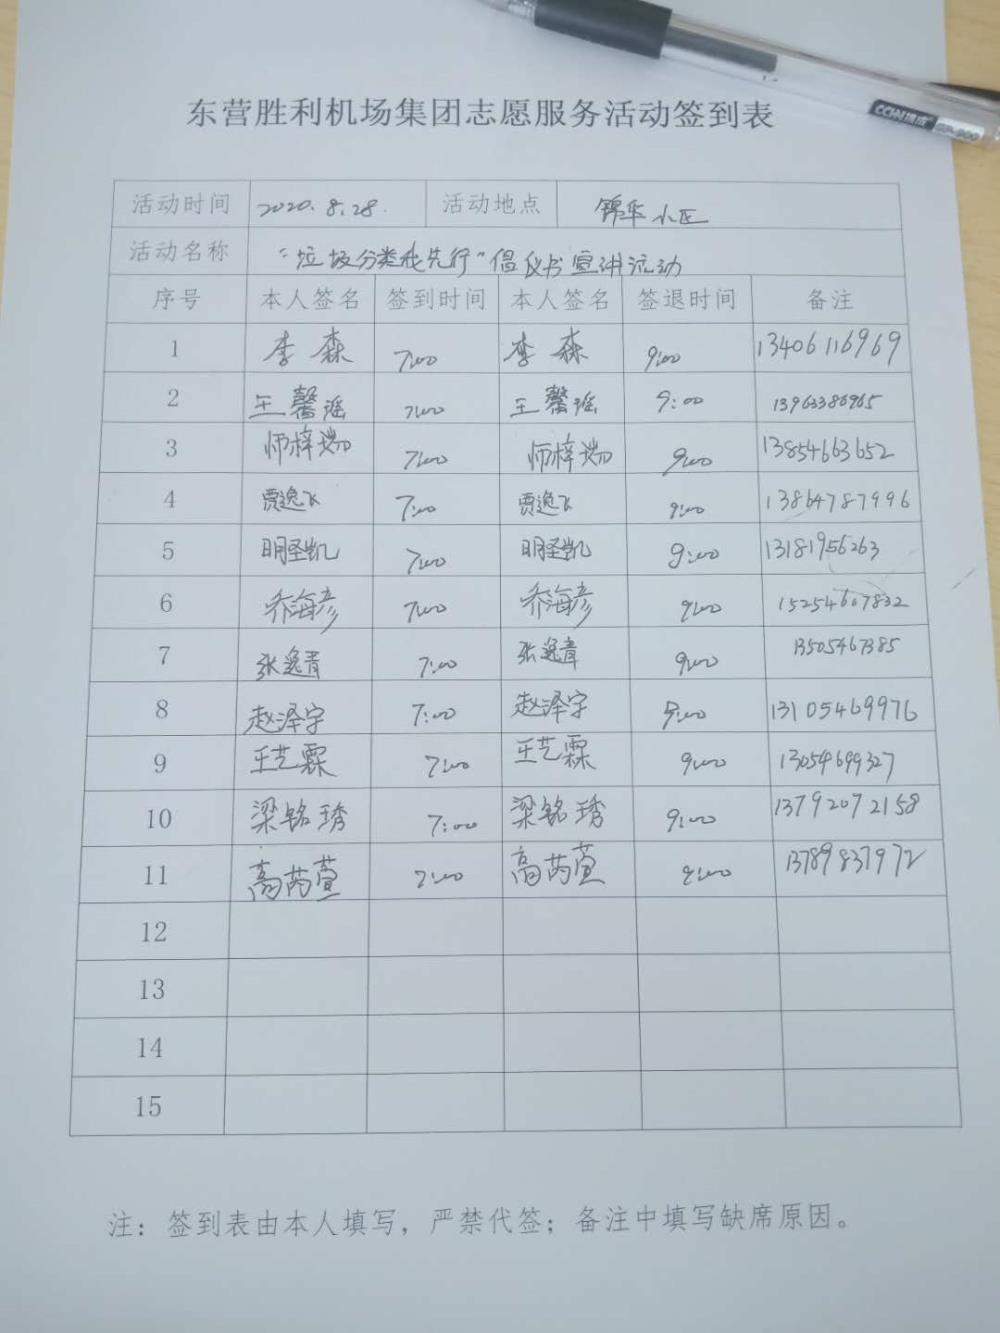 东营胜利机场集团志愿服务活动签到表
活动时间 2020.8.28. 活动地点 锦华小区
活动名称 "垃圾分类我先行"倡议书宣讲活动
序号 本人签名 签到时间 本人签名 签退时间 备注
1 李森 7:00 李森 9:00 13406116969
2 王馨瑶 7:00 王馨瑶 9:00 13963386965
3 师梓瑞 7:00 师梓瑞 9:00 13854663652
4 贾逸飞 7:00 贾逸飞 9:00 13864787996
5 明圣凯 7:00 明圣凯 9:00 13181956263
6 乔海彦 7:00 乔海彦 9:00 15254607832
7 张逸青 7:00 张逸青 9:00 13505467385
8 赵泽宇 7:00 赵泽宇 9:00 13105469976
9 王艺霖 7:00 王艺霖 9:00 13054699327
10 梁铭琇 7:00 梁铭琇 9:00 13792072158
11 高芮萱 7:00 高芮萱 9:00 13789837972
12
13
14
15
注：签到表由本人填写，严禁代签；备注中填写缺席原因。